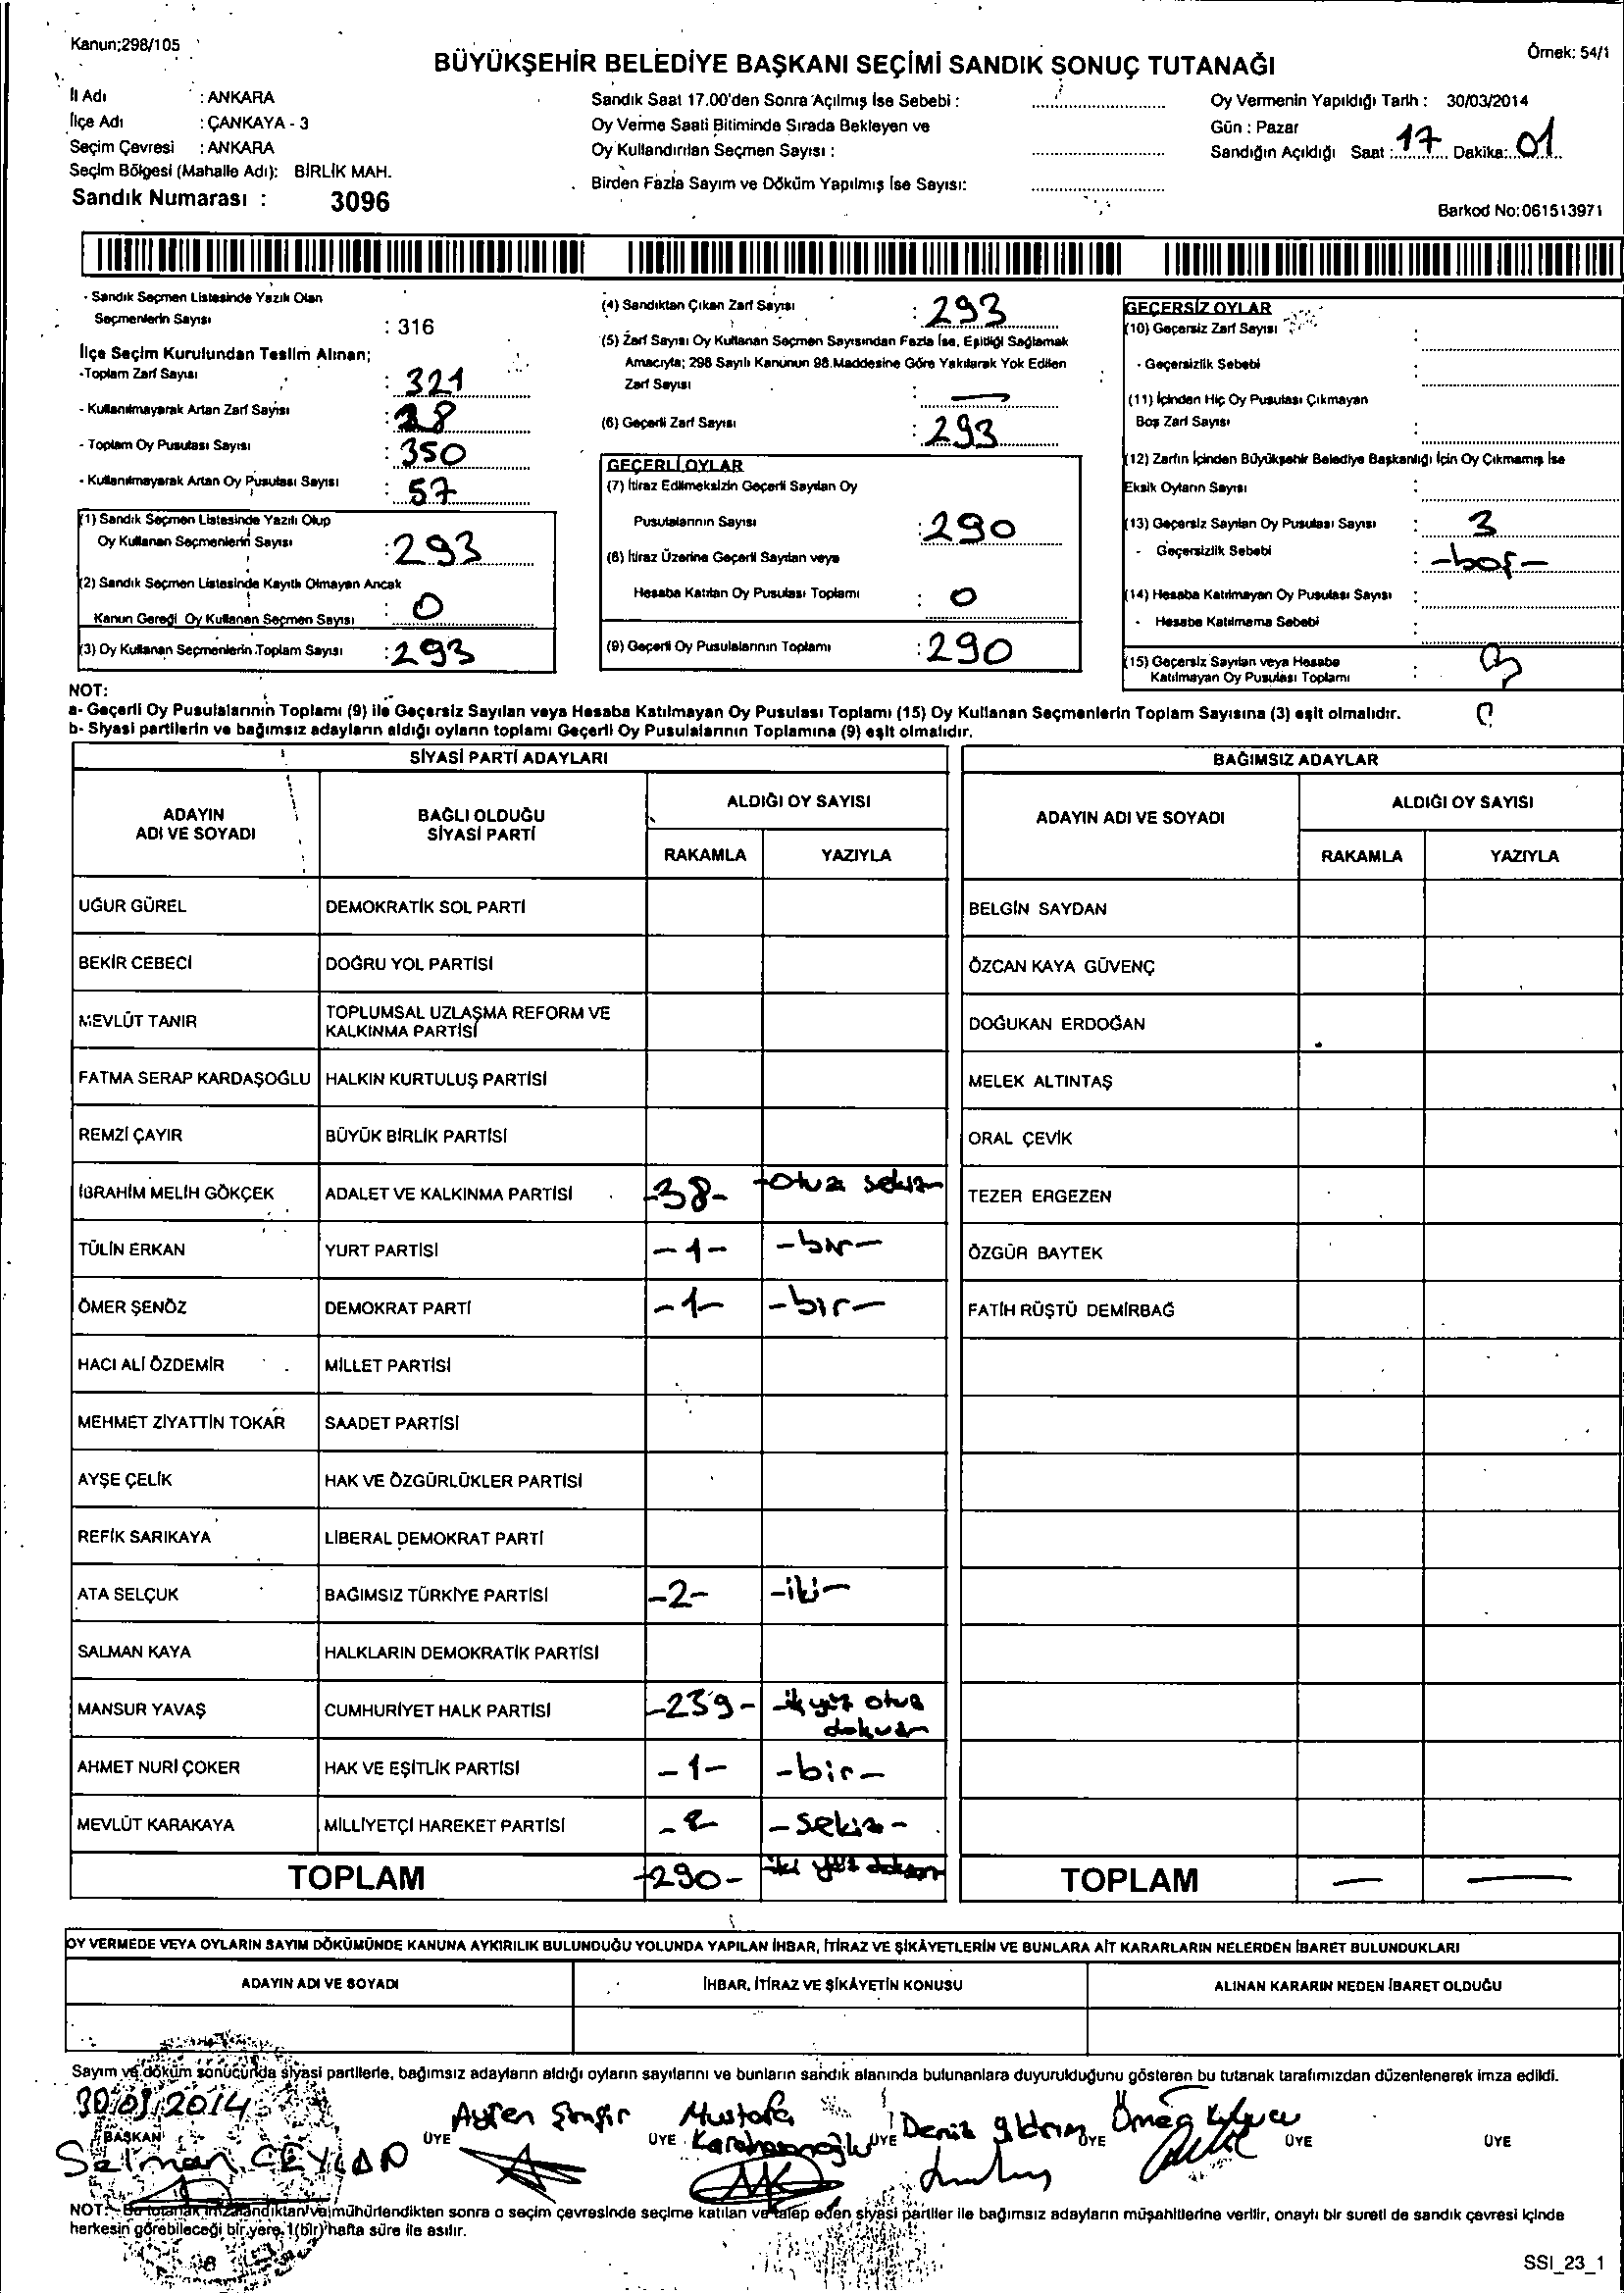 Kanun;298/105
Örnek: 54/1
BÜYÜKŞEHİR BELEDİYE BAŞKANI SEÇİMİ SANDIK SONUÇ TUTANAĞI
İl Adı : ANKARA
İlçe Adı : ÇANKAYA - 3
Seçim Çevresi : ANKARA
Seçim Bölgesi (Mahalle Adı): BİRLİK MAH.
Sandık Numarası : 3096
Sandık Saat 17.00'den Sonra Açılmış İse Sebebi :
Oy Verme Saati Bitiminde Sırada Bekleyen ve
Oy Kullandırılan Seçmen Sayısı :
Birden Fazla Sayım ve Döküm Yapılmış İse Sayısı:
Oy Vermenin Yapıldığı Tarih : 30/03/2014
Gün : Pazar
Sandığın Açıldığı Saat : 17 Dakika: 01
Barkod No:061513971
- Sandık Seçmen Listesinde Yazılı Olan
Seçmenlerin Sayısı : 316
İlçe Seçim Kurulundan Teslim Alınan;
-Toplam Zarf Sayısı : 321
- Kullanılmayarak Artan Zarf Sayısı : 28
- Toplam Oy Pusulası Sayısı : 350
- Kullanılmayarak Artan Oy Pusulası Sayısı : 57
(1) Sandık Seçmen Listesinde Yazılı Olup
Oy Kullanan Seçmenlerin Sayısı : 293
(2) Sandık Seçmen Listesinde Kayıtlı Olmayan Ancak
Kanun Gereği Oy Kullanan Seçmen Sayısı : 0
(3) Oy Kullanan Seçmenlerin Toplam Sayısı : 293
(4) Sandıktan Çıkan Zarf Sayısı : 293
(5) Zarf Sayısı Oy Kullanan Seçmen Sayısından Fazla İse, Eşitliği Sağlamak
Amacıyla; 298 Sayılı Kanunun 98.Maddesine Göre Yakılarak Yok Edilen
Zarf Sayısı : —
(6) Geçerli Zarf Sayısı : 293
GEÇERLİ OYLAR
(7) İtiraz Edilmeksizin Geçerli Sayılan Oy
Pusulalarının Sayısı : 290
(8) İtiraz Üzerine Geçerli Sayılan veya
Hesaba Katılan Oy Pusulası Toplamı : 0
(9) Geçerli Oy Pusulalarının Toplamı : 290
GEÇERSİZ OYLAR
(10) Geçersiz Zarf Sayısı :
- Geçersizlik Sebebi :
(11) İçinden Hiç Oy Pusulası Çıkmayan
Boş Zarf Sayısı :
(12) Zarfın İçinden Büyükşehir Belediye Başkanlığı İçin Oy Çıkmamış İse
Eksik Oyların Sayısı :
(13) Geçersiz Sayılan Oy Pusulası Sayısı : 3
- Geçersizlik Sebebi : -boş-
(14) Hesaba Katılmayan Oy Pusulası Sayısı :
- Hesaba Katılmama Sebebi :
(15) Geçersiz Sayılan veya Hesaba
Katılmayan Oy Pusulası Toplamı : 3
NOT:
a- Geçerli Oy Pusulalarının Toplamı (9) ile Geçersiz Sayılan veya Hesaba Katılmayan Oy Pusulası Toplamı (15) Oy Kullanan Seçmenlerin Toplam Sayısına (3) eşit olmalıdır.
b- Siyasi partilerin ve bağımsız adayların aldığı oyların toplamı Geçerli Oy Pusulalarının Toplamına (9) eşit olmalıdır.
SİYASİ PARTİ ADAYLARI
ADAYIN ADI VE SOYADI
BAĞLI OLDUĞU SİYASİ PARTİ
ALDIĞI OY SAYISI
RAKAMLA YAZIYLA
UĞUR GÜREL DEMOKRATİK SOL PARTİ
BEKİR CEBECİ DOĞRU YOL PARTİSİ
MEVLÜT TANIR TOPLUMSAL UZLAŞMA REFORM VE KALKINMA PARTİSİ
FATMA SERAP KARDAŞOĞLU HALKIN KURTULUŞ PARTİSİ
REMZİ ÇAYIR BÜYÜK BİRLİK PARTİSİ
İBRAHİM MELİH GÖKÇEK ADALET VE KALKINMA PARTİSİ -38- -otuz sekiz-
TÜLİN ERKAN YURT PARTİSİ -1- -bir-
ÖMER ŞENÖZ DEMOKRAT PARTİ -1- -bir-
HACI ALİ ÖZDEMİR MİLLET PARTİSİ
MEHMET ZİYATTİN TOKAR SAADET PARTİSİ
AYŞE ÇELİK HAK VE ÖZGÜRLÜKLER PARTİSİ
REFİK SARIKAYA LİBERAL DEMOKRAT PARTİ
ATA SELÇUK BAĞIMSIZ TÜRKİYE PARTİSİ -2- -iki-
SALMAN KAYA HALKLARIN DEMOKRATİK PARTİSİ
MANSUR YAVAŞ CUMHURİYET HALK PARTİSİ -239- -iki yüz otuz dokuz-
AHMET NURİ ÇOKER HAK VE EŞİTLİK PARTİSİ -1- -bir-
MEVLÜT KARAKAYA MİLLİYETÇİ HAREKET PARTİSİ -8- -sekiz-
TOPLAM -290- iki yüz doksan
BAĞIMSIZ ADAYLAR
ADAYIN ADI VE SOYADI
ALDIĞI OY SAYISI
RAKAMLA YAZIYLA
BELGİN SAYDAN
ÖZCAN KAYA GÜVENÇ
DOĞUKAN ERDOĞAN
MELEK ALTINTAŞ
ORAL ÇEVİK
TEZER ERGEZEN
ÖZGÜR BAYTEK
FATİH RÜŞTÜ DEMİRBAĞ
TOPLAM — —
OY VERMEDE VEYA OYLARIN SAYIM DÖKÜMÜNDE KANUNA AYKIRILIK BULUNDUĞU YOLUNDA YAPILAN İHBAR, İTİRAZ VE ŞİKÂYETLERİN VE BUNLARA AİT KARARLARIN NELERDEN İBARET BULUNDUKLARI
ADAYIN ADI VE SOYADI İHBAR, İTİRAZ VE ŞİKÂYETİN KONUSU ALINAN KARARIN NEDEN İBARET OLDUĞU
Sayım ve döküm sonucunda siyasi partilerle, bağımsız adayların aldığı oyların sayılarını ve bunların sandık alanında bulunanlara duyurulduğunu gösteren bu tutanak tarafımızdan düzenlenerek imza edildi.
30/03/2014
BAŞKAN ÜYE ÜYE ÜYE ÜYE ÜYE ÜYE
Selman CEYLAN
Ayten
Mustafa
Deniz Yıldırım
NOT:- Bu tutanak imzalandıktan ve mühürlendikten sonra o seçim çevresinde seçime katılan ve talep eden siyasi partiler ile bağımsız adayların müşahitlerine verilir, onaylı bir sureti de sandık çevresi içinde
herkesin görebileceği bir yere, 1(bir) hafta süre ile asılır.
SSI_23_1